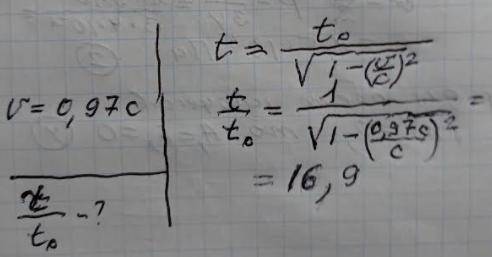 v = 0,97c
t/t₀ - ?
t = t₀/√(1-(v/c)²)
t/t₀ = 1/√(1-(0,97c/c)²) =
= 16,9